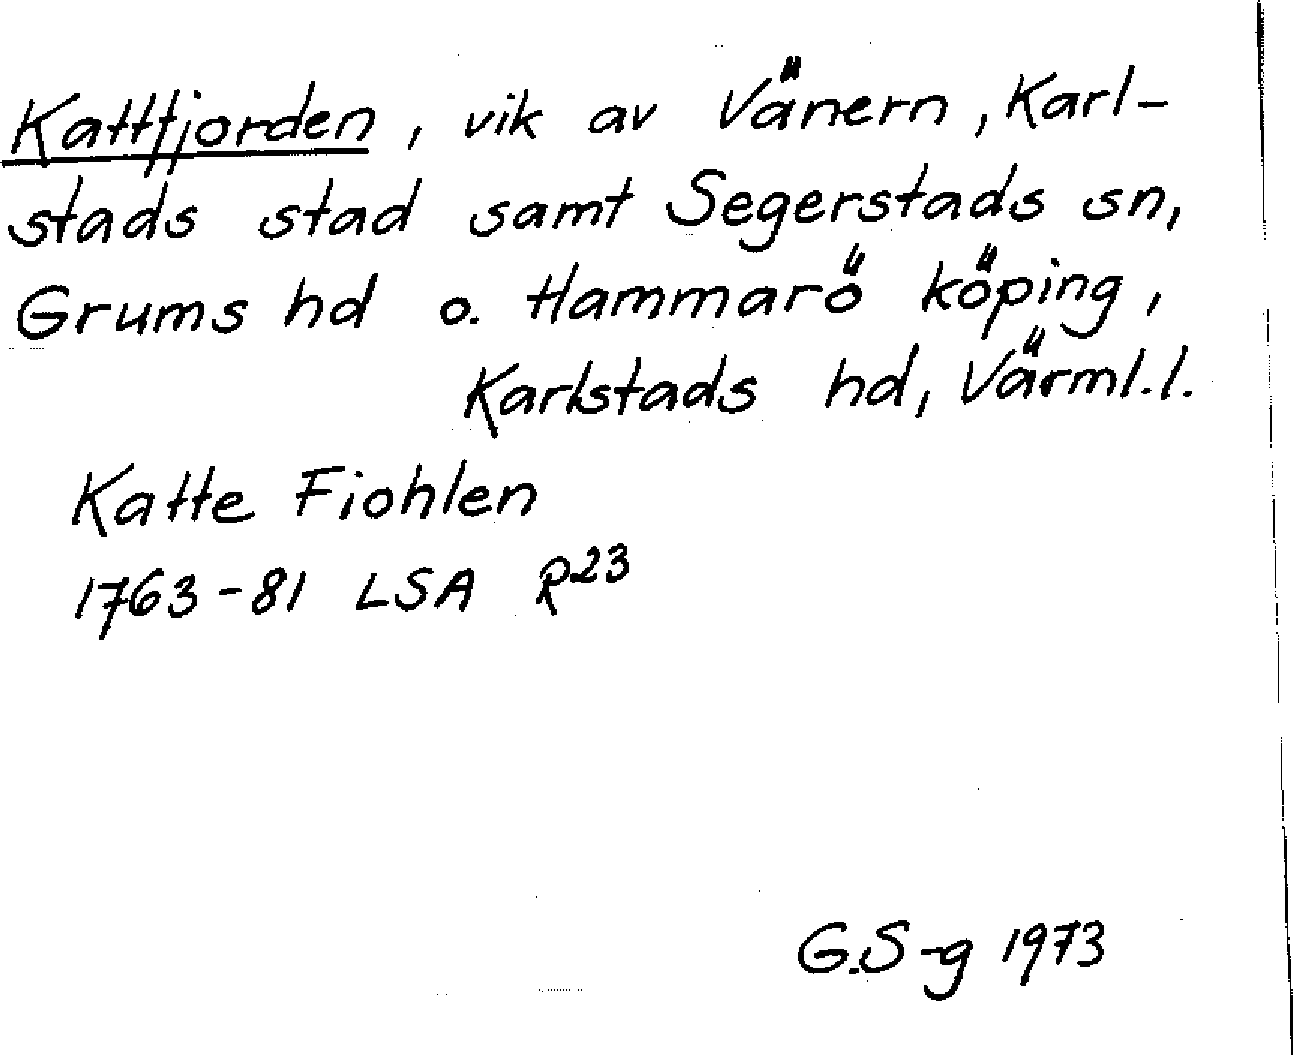 Kattfjorden, vik av Vänern, Karl-
stads stad samt Segerstads sn,
Grums hd o. Hammarö köping,
Karlstads hd, Värml.l.
Katte Fiohlen
1763-81 LSA R23
G.S-g 1973